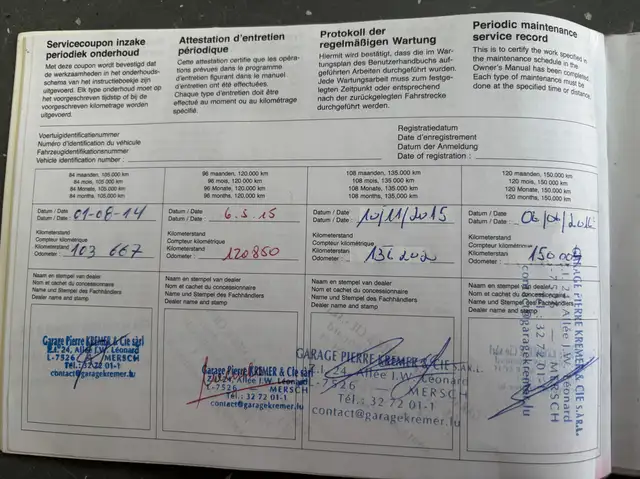 Servicecoupon inzake
periodiek onderhoud
Met deze coupon wordt bevestigd dat
de werkzaamheden in het onderhouds-
schema van het instructieboekje zijn
uitgevoerd. Elk type onderhoud moet op
het voorgeschreven tijdstip of bij de
voorgeschreven kilometrage worden
uitgevoerd.
Attestation d'entretien
périodique
Cette attestation certifie que les opéra-
tions prévues dans le programme
d'entretien figurant dans le manuel
d'entretien ont été effectuées.
Chaque type d'entretien doit être
effectué au moment ou au kilométrage
spécifié.
Protokoll der
regelmäßigen Wartung
Hiermit wird bestätigt, daß die im War-
tungsplan des Benutzerhandbuchs auf-
geführten Arbeiten durchgeführt wurden.
Jede Wartungsarbeit muss zum festge-
legten Zeitpunkt oder entsprechend
nach der zurückgelegten Fahrstrecke
durchgeführt werden.
Periodic maintenance
service record
This is to certify the work specified in
the maintenance schedule in the
Owner's Manual has been completed.
Each type of maintenance must be
done at the specified time or distance.
Voertuigidentificatienummer
Numéro d'identification du véhicule
Fahrzeugidentifikationsnummer
Vehicle identification number :
Registratiedatum
Date d'enregistrement
Datum der Anmeldung
Date of registration :
84 maanden, 105.000 km
84 mois, 105.000 km
84 Monate, 105.000 km
84 months, 105.000 km
96 maanden, 120.000 km
96 mois, 120.000 km
96 Monate, 120.000 km
96 months, 120.000 km
108 maanden, 135.000 km
108 mois, 135.000 km
108 Monate, 135.000 km
108 months, 135.000 km
120 maanden, 150.000 km
120 mois, 150.000 km
120 Monate, 150.000 km
120 months, 150.000 km
Datum / Date
Datum / Date : 01-08-14
Kilometerstand
Compteur kilométrique
Kilometerstand
Odometer : 103 667
Datum / Date
Datum / Date : 6.5.15
Kilometerstand
Compteur kilométrique
Kilometerstand
Odometer : 120850
Datum / Date
Datum / Date : 10/11/2015
Kilometerstand
Compteur kilométrique
Kilometerstan
Odometer :
Datum / Date
Datum / Date :
Kilometerstand
Compteur kilométrique
Kilometerstan
Odometer :
Naam en stempel van dealer
Nom et cachet du concessionnaire
Name und Stempel des Fachhändlers
Dealer name and stamp
Naam en stempel van dealer
Nom et cachet du concessionnaire
Name und Stempel des Fachhändlers
Dealer name and stamp
Naam en stempel van dealer
Nom et cachet du concessionnaire
Name und Stempel des Fachhändlers
Dealer name and stamp
Naam en stempel van dealer
Nom et cachet du concessionnaire
Name und Stempel des Fachhändlers
Dealer name and stamp
Garage Pierre KREMER & Cie sàrl
24, Allée J.W. Léonard
L-7526 MERSCH
Tél.: 32 72 01-1
contact@garagekremer.lu
Garage Pierre KREMER & Cie sàrl
24, Allée J.W. Léonard
L-7526 MERSCH
Tél.: 32 72 01-1
contact@garagekremer.lu
GARAGE PIERRE KREMER & CIE S.À R.L.
24, Allée J.W. Léonard
L-7526 MERSCH
Tél.: 32 72 01-1
contact@garagekremer.lu
GARAGE PIERRE KREMER & CIE S.À R.L.
24, Allée J.W. Léonard
MERSCH
32 72 01-1
contact@garagekremer.lu